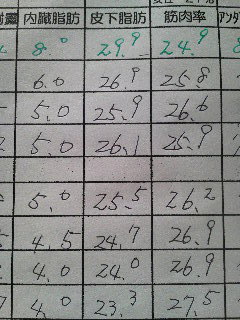 内臓脂肪 皮下脂肪 筋肉率
8.0 29.9 24.9
6.0 26.9 25.8
5.0 25.9 26.6
5.0 26.1 25.9
5.0 25.5 26.2
4.5 24.7 26.9
4.0 24.0 26.9
4.0 23.3 27.5